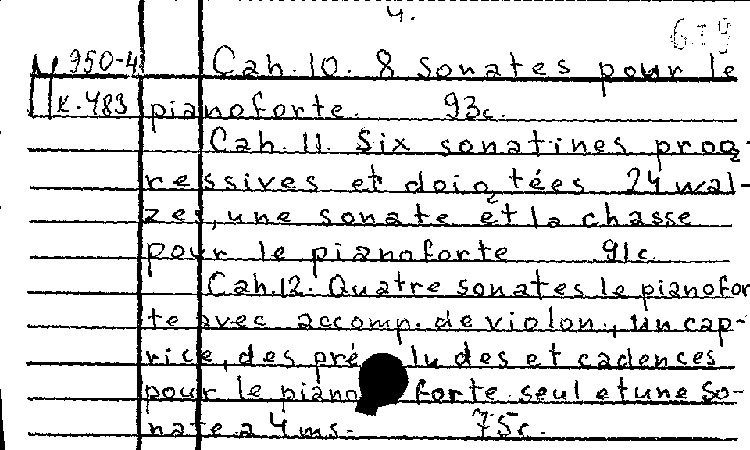 4.
619
N 950-4 Cah. 10. 8 sonates pour le
K. 483 pianoforte. 93c.
Cah. 11. Six sonatines prog-
ressives et doigtées 24 wal-
zes, une sonate et la chasse
pour le pianoforte 91c
Cah. 12. Quatre sonates le pianofor
te avec accomp. de violon, un cap-
rice, des préludes et cadences
pour le pianoforte seul et une so-
nate a 4 ms. 75c.